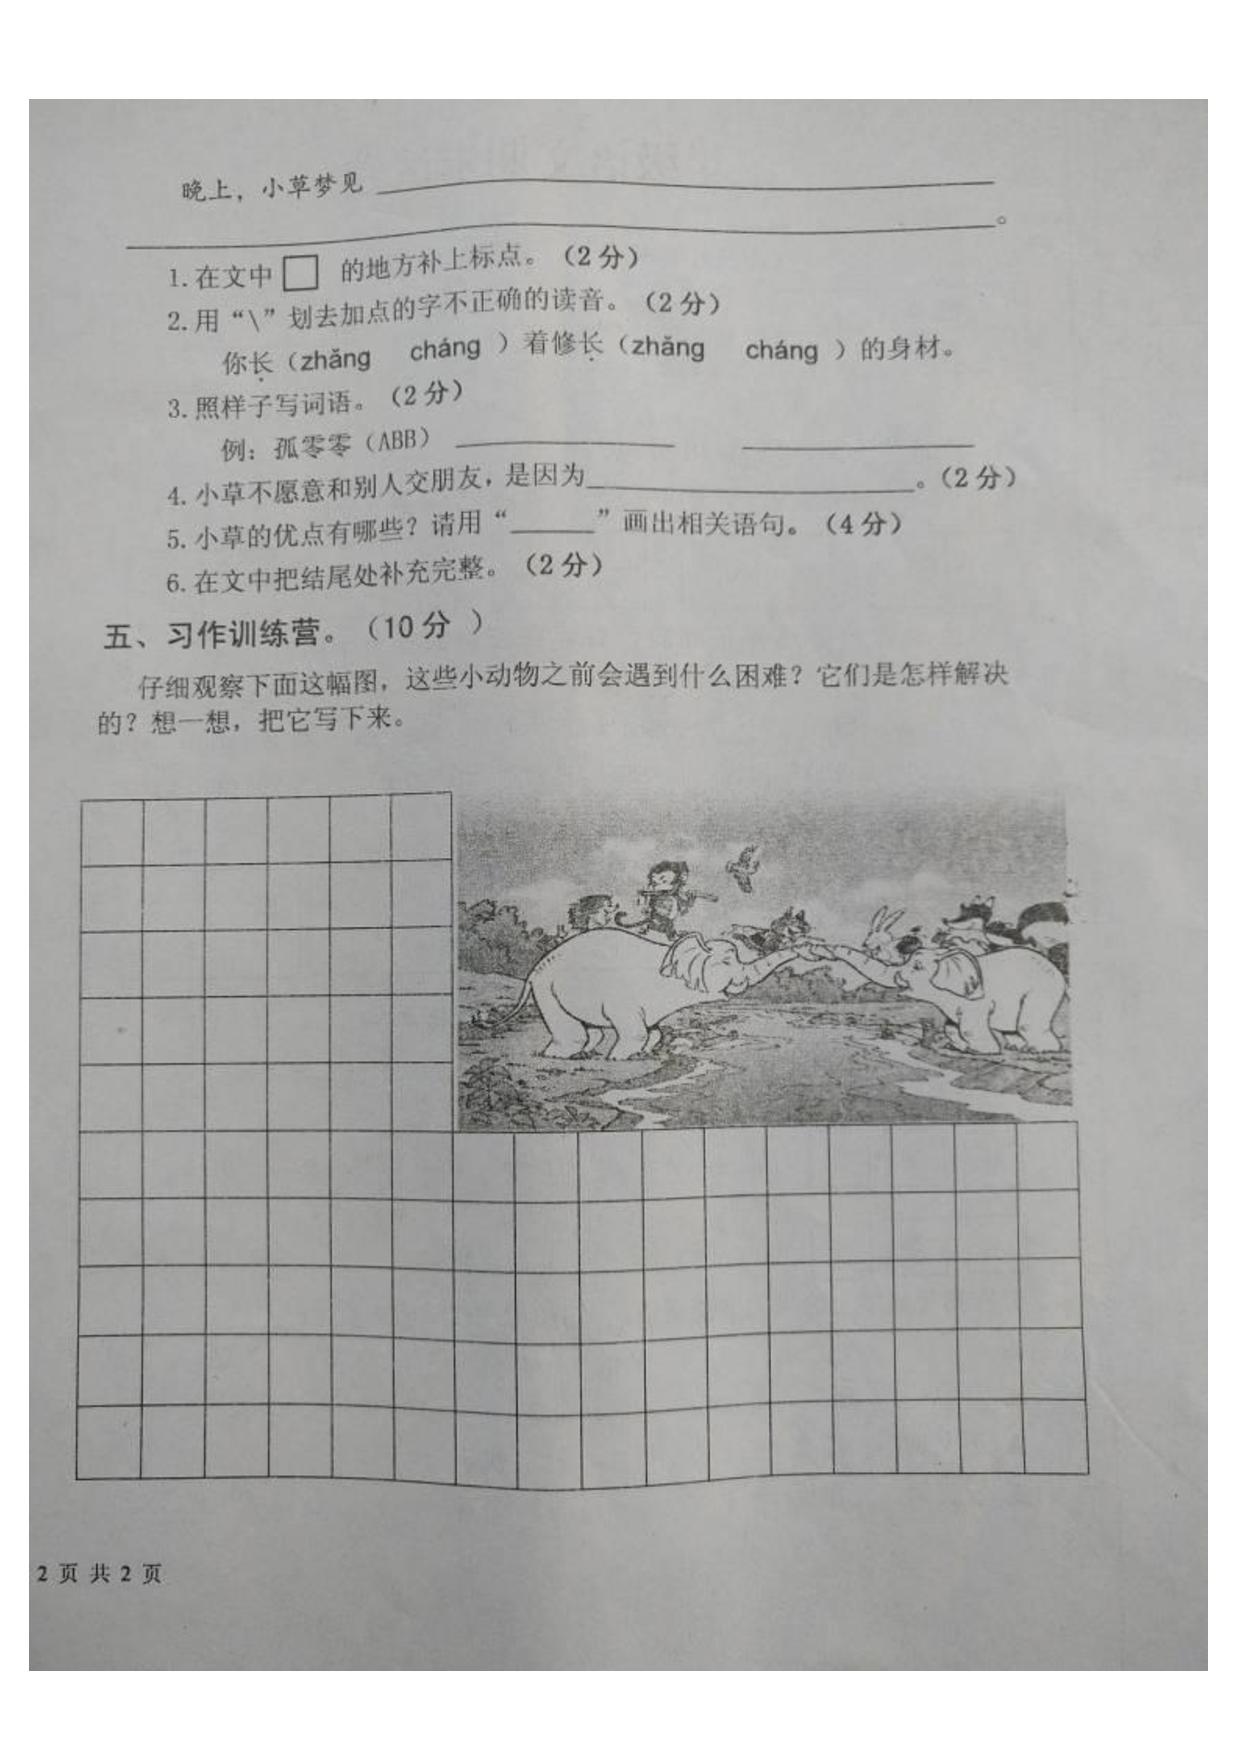 晚上，小草梦见
。
1.在文中□ 的地方补上标点。（2分）
2.用“\”划去加点的字不正确的读音。（2分）
你长（zhǎng cháng ）着修长（zhǎng cháng ）的身材。
3.照样子写词语。（2分）
例：孤零零（ABB）
4.小草不愿意和别人交朋友，是因为＿＿＿＿＿＿。（2分）
5.小草的优点有哪些？请用“＿＿＿”画出相关语句。（4分）
6.在文中把结尾处补充完整。（2分）
五、习作训练营。（10分 ）
仔细观察下面这幅图，这些小动物之前会遇到什么困难？它们是怎样解决
的？想一想，把它写下来。
2 页 共 2 页